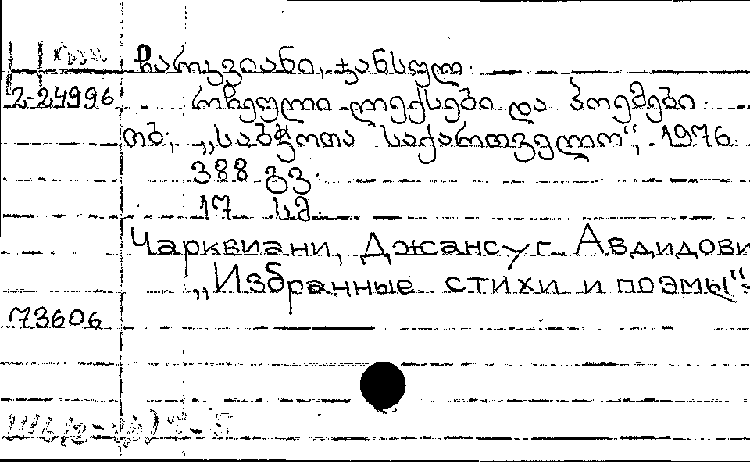 ჩარკვიანი, ჯანსუღ.
2-24996 რჩეული ლექსები და პოემები.
თბ., „საბჭოთა საქართველო“, 1976.
388 გვ.
17 სმ.
Чарквиани, Джансуг Авдидови
„Избранные стихи и поэмы“.
73606